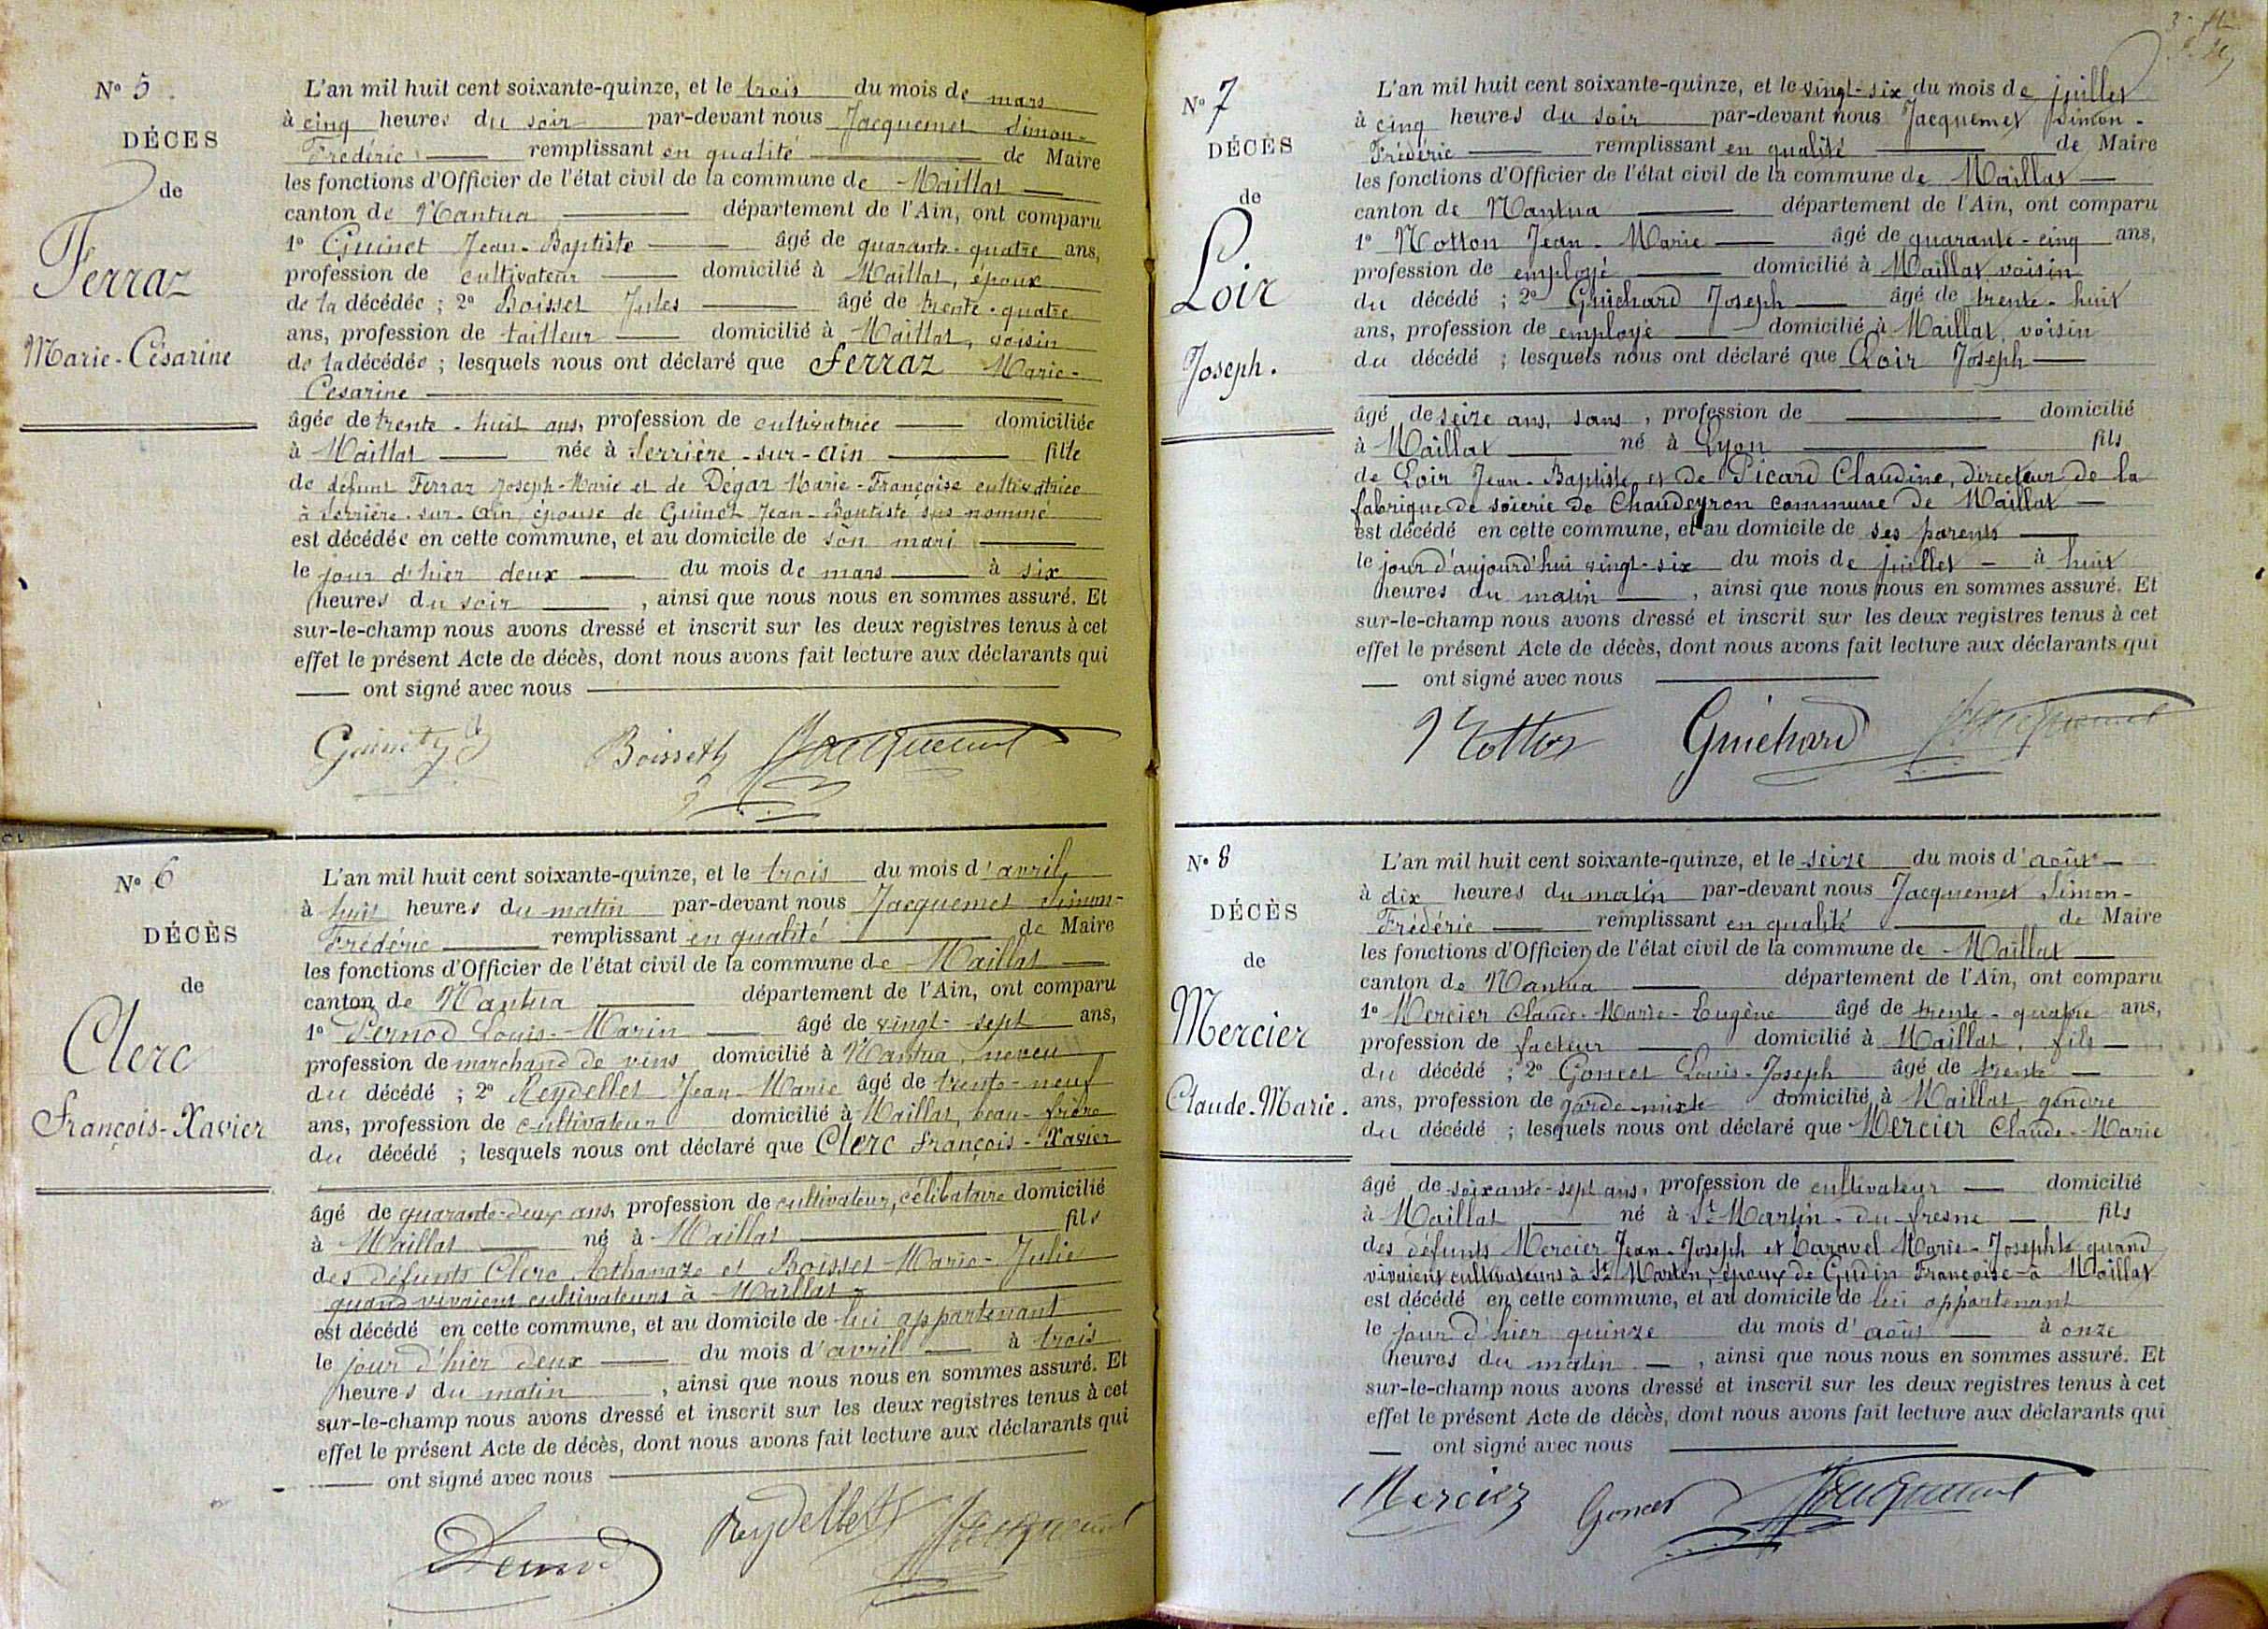 Nº 5
DÉCES
de
Ferraz
Marie-Césarine
L'an mil huit cent soixante-quinze, et le trois du mois de mars
à cinq heures du soir par-devant nous Jacquemet Simon-
Frédéric remplissant en qualité de Maire
les fonctions d'Officier de l'état civil de la commune de Maillat
canton de Nantua département de l'Ain, ont comparu
1º Guinet Jean-Baptiste âgé de quarante-quatre ans,
profession de cultivateur domicilié à Maillat, époux
de la décédée ; 2º Boisset Jules âgé de trente-quatre
ans, profession de tailleur domicilié à Maillat, voisin
de la décédée ; lesquels nous ont déclaré que Ferraz Marie-
Césarine
âgée de trente-huit ans, profession de cultivatrice domiciliée
à Maillat née à Serrière-sur-Ain fille
de défunt Ferraz Joseph-Marie et de Dégaz Marie-Françoise cultivatrice
à Serrière-sur-Ain, épouse de Guinet Jean-Baptiste sus nommé
est décédée en cette commune, et au domicile de son mari
le jour d'hier deux du mois de mars à six
heures du soir , ainsi que nous nous en sommes assuré. Et
sur-le-champ nous avons dressé et inscrit sur les deux registres tenus à cet
effet le présent Acte de décès, dont nous avons fait lecture aux déclarants qui
ont signé avec nous
Guinet Boisseth Jacquemet
Nº 6
DÉCÈS
de
Clerc
François-Xavier
L'an mil huit cent soixante-quinze, et le trois du mois d'avril,
à huit heures du matin par-devant nous Jacquemet Simon-
Frédéric remplissant en qualité de Maire
les fonctions d'Officier de l'état civil de la commune de Maillat
canton de Nantua département de l'Ain, ont comparu
1º Pernod Louis-Marin âgé de vingt-sept ans,
profession de marchand de vins domicilié à Nantua, neveu
du décédé ; 2º Reydellet Jean-Marie âgé de trente-neuf
ans, profession de cultivateur domicilié à Maillat, beau-frère
du décédé ; lesquels nous ont déclaré que Clerc François-Xavier
âgé de quarante-deux ans, profession de cultivateur, célibataire domicilié
à Maillat né à Maillat fils
des défunts Clerc Athanaze et Boisset Marie-Julie
quand vivaient cultivateurs à Maillat
est décédé en cette commune, et au domicile de lui appartenant
le jour d'hier deux du mois d'avril à trois
heures du matin , ainsi que nous nous en sommes assuré. Et
sur-le-champ nous avons dressé et inscrit sur les deux registres tenus à cet
effet le présent Acte de décès, dont nous avons fait lecture aux déclarants qui
ont signé avec nous
Pernod Reydellet Jacquemet
Nº 7
DÉCÈS
de
Loir
Joseph.
L'an mil huit cent soixante-quinze, et le vingt-six du mois de juillet
à cinq heures du soir par-devant nous Jacquemet Simon-
Frédéric remplissant en qualité de Maire
les fonctions d'Officier de l'état civil de la commune de Maillat
canton de Nantua département de l'Ain, ont comparu
1º Notton Jean-Marie âgé de quarante-cinq ans,
profession de employé domicilié à Maillat voisin
du décédé ; 2º Guichard Joseph âgé de trente-huit
ans, profession de employé domicilié à Maillat, voisin
du décédé ; lesquels nous ont déclaré que Loir Joseph
âgé de seize ans, sans , profession de domicilié
à Maillat né à Lyon fils
de Loir Jean-Baptiste et de Picard Claudine, directeur de la
fabrique de soierie de Chaudeyron commune de Maillat
est décédé en cette commune, et au domicile de ses parents
le jour d'aujourd'hui vingt-six du mois de juillet à huit
heures du matin , ainsi que nous nous en sommes assuré. Et
sur-le-champ nous avons dressé et inscrit sur les deux registres tenus à cet
effet le présent Acte de décès, dont nous avons fait lecture aux déclarants qui
ont signé avec nous
Notton Guichard Jacquemet
Nº 8
DÉCÈS
de
Mercier
Claude-Marie.
L'an mil huit cent soixante-quinze, et le seize du mois d'août
à dix heures du matin par-devant nous Jacquemet Simon-
Frédéric remplissant en qualité de Maire
les fonctions d'Officier de l'état civil de la commune de Maillat
canton de Nantua département de l'Ain, ont comparu
1º Mercier Claude-Marie-Eugène âgé de trente-quatre ans,
profession de facteur domicilié à Maillat, fils
du décédé ; 2º Goncet Louis-Joseph âgé de trente
ans, profession de garde-mixte domicilié à Maillat, gendre
du décédé ; lesquels nous ont déclaré que Mercier Claude-Marie
âgé de soixante-sept ans, profession de cultivateur domicilié
à Maillat né à St Martin-du-fresne fils
des défunts Mercier Jean-Joseph et Caravel Marie-Josephte quand
vivaient cultivateurs à St Martin, époux de Gudin Françoise à Maillat
est décédé en cette commune, et au domicile de lui appartenant
le jour d'hier quinze du mois d'août à onze
heures du matin , ainsi que nous nous en sommes assuré. Et
sur-le-champ nous avons dressé et inscrit sur les deux registres tenus à cet
effet le présent Acte de décès, dont nous avons fait lecture aux déclarants qui
ont signé avec nous
Mercier Goncet Jacquemet